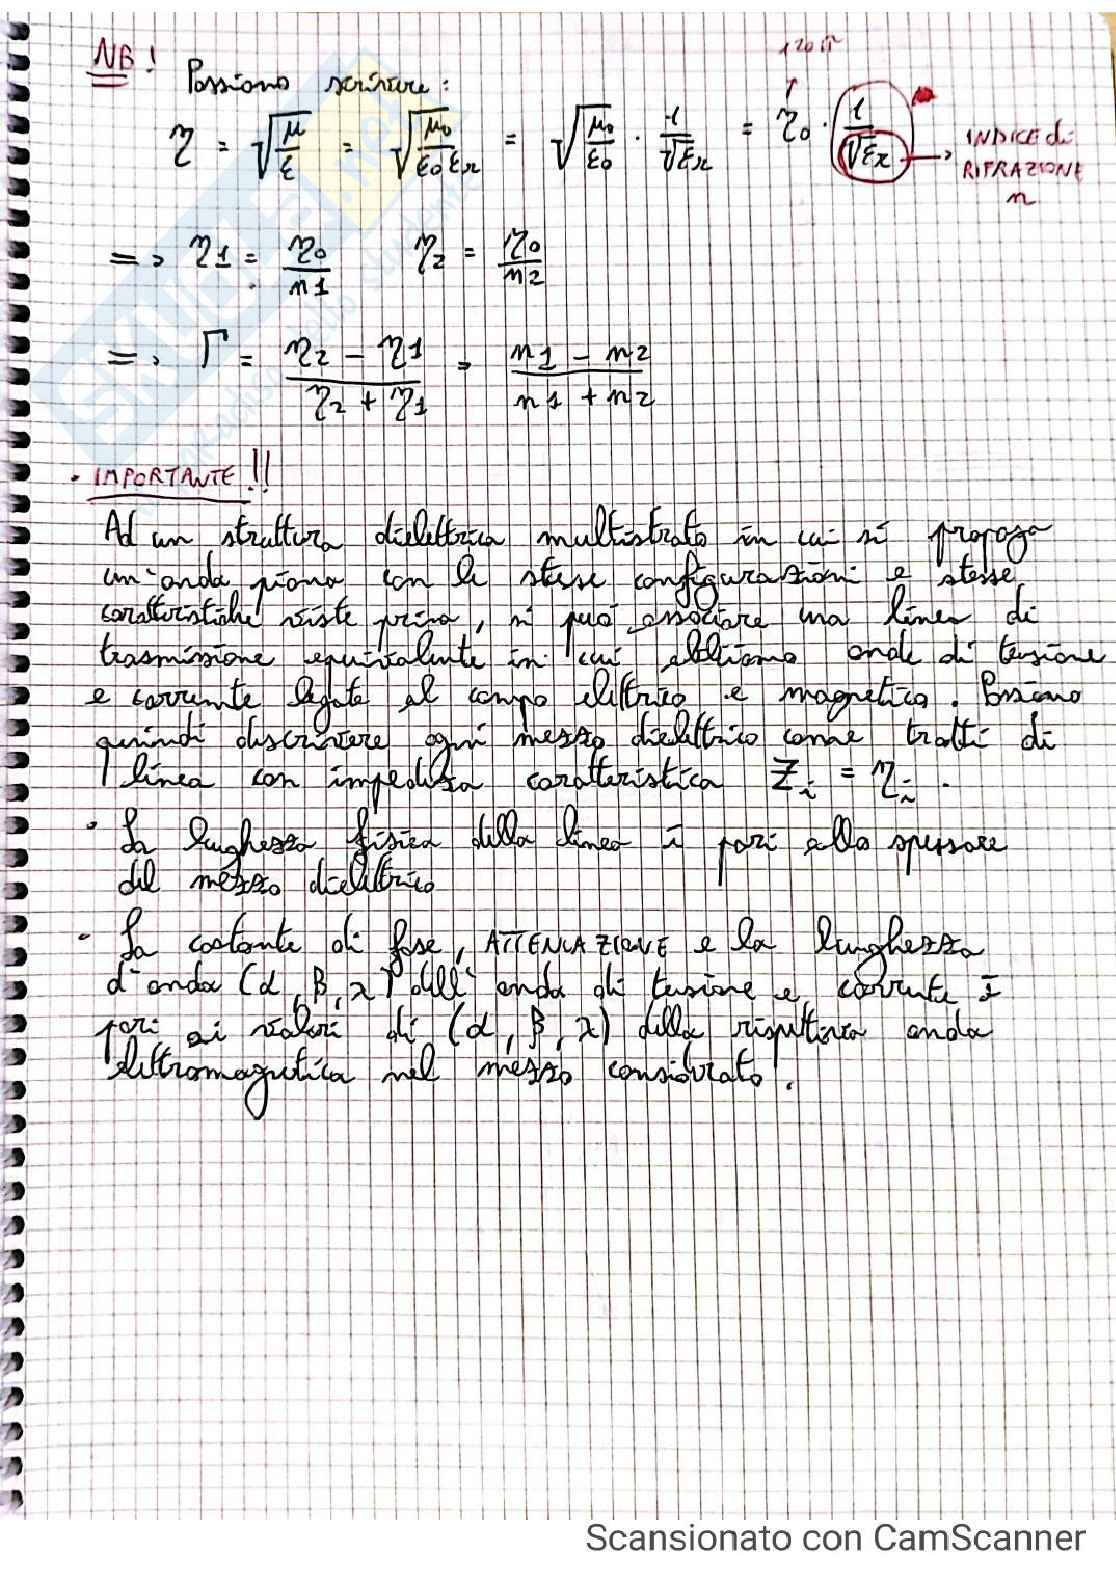 NB!
120π
Possiamo scrivere:
η = √(μ/ε) = √(μ0/(ε0 εr)) = √(μ0/ε0) · 1/√εr = η0 · 1/√εr → INDICE di RIFRAZIONE n
=> η1 = η0/n1   η2 = η0/n2
=> Γ = (η2 - η1)/(η2 + η1) = (n1 - n2)/(n1 + n2)
· IMPORTANTE!!
Ad un struttura dielettrica multistrato in cui si propaga
un'onda piana con le stesse configurazioni e stesse
caratteristiche viste prima, si può associare una linea di
trasmissione equivalente in cui abbiamo onde di tensione
e corrente legate al campo elettrico e magnetico. Possiamo
quindi descrivere ogni mezzo dielettrico come tratti di
linea con impedenza caratteristica Zi = ηi.
· La lunghezza fisica della linea è pari allo spessore
del mezzo dielettrico
· La costante di fase, ATTENUAZIONE e la lunghezza
d'onda (α, β, λ) dell'onda di tensione e corrente è
pari ai valori di (α, β, λ) della rispettiva onda
elettromagnetica nel mezzo considerato.
Scansionato con CamScanner